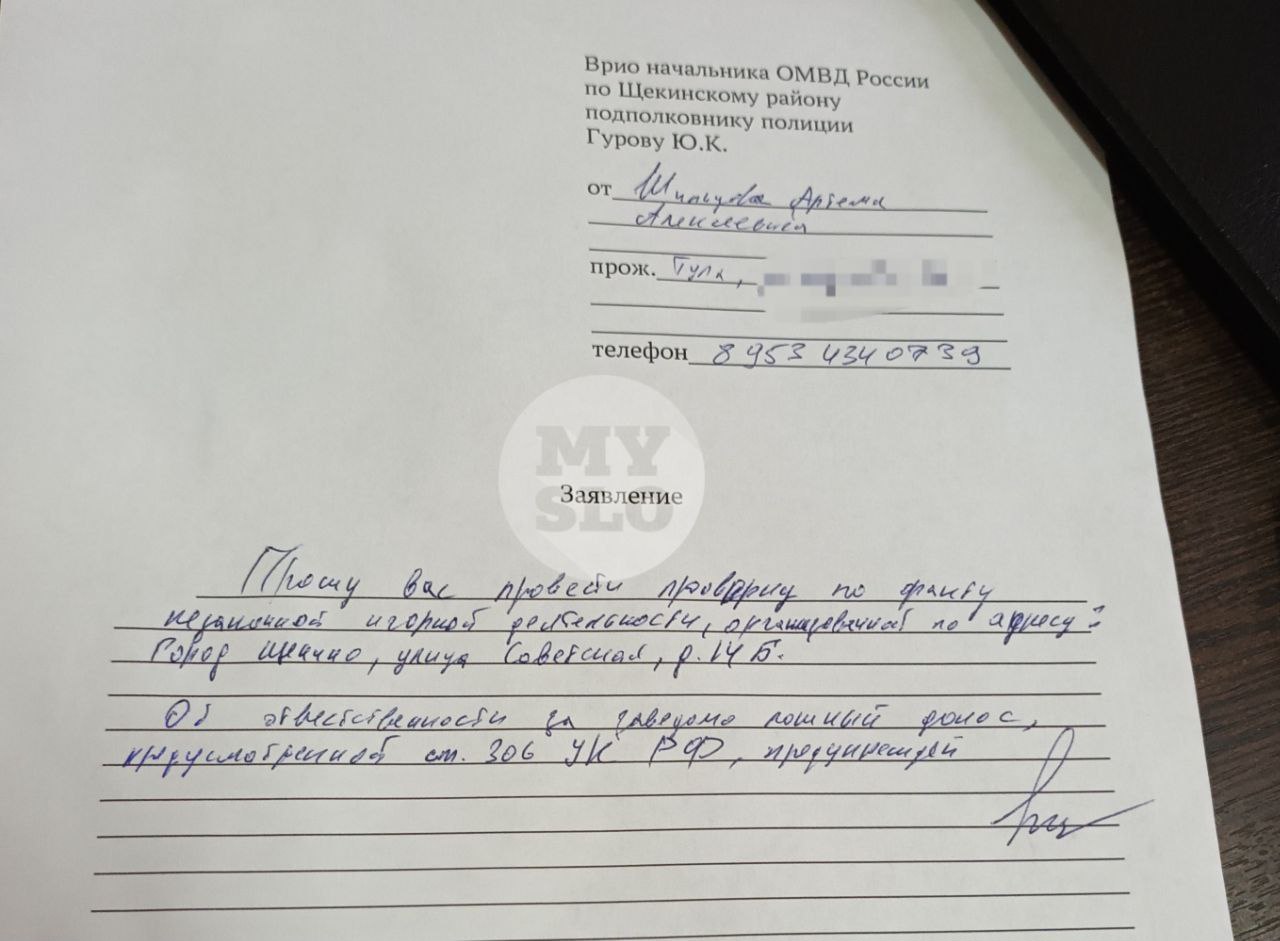 Врио начальника ОМВД России
по Щекинскому району
подполковнику полиции
Гурову Ю.К.
от Артема
Алексеевича
прож. Тула,
телефон 8 953 434 07 39
MY
SLO
Заявление
Прошу вас провести проверку по факту
незаконной игорной деятельности, организованной по адресу:
Город Щекино, улица Советская, д. 14 Б.
Об ответственности за заведомо ложный донос,
предусмотренной ст. 306 УК РФ, предупрежден